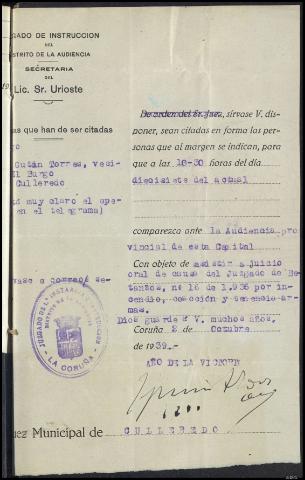 JUZGADO DE INSTRUCCION
DEL
DISTRITO DE LA AUDIENCIA
SECRETARIA
DEL
Lic. Sr. Urioste
as que han de ser citadas
Gután Torres, veci-
El Burgo
Culleredo
muy claro el ape-
en el telegrama)
De orden del Sr. Juez, sírvase V. dis-
poner, sean citadas en forma las per-
sonas que al margen se indican, para
que a las 10-30 horas del día
diecisiete del actual
comparezca ante la Audiencia pro
vincial de esta Capital
Con objeto de asistir a juicio
oral de causa del Juzgado de Be-
tanzos, nº 16 de 1.936 por in-
cendio, coacción y tenencia ar-
mas.
Dios guarde a V. muchos años.
Coruña 2 de Octubre
de 1939.-
AÑO DE LA VICTORIA
JUZGADO DE INSTRUCCION
LA CORUÑA
uez Municipal de CULLEREDO